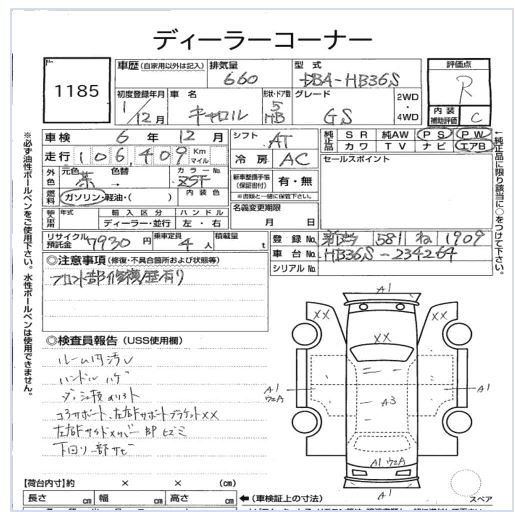 ディーラーコーナー
1185
車歴 (自家用以外は記入)
排気量 660
型式 DBA-HB36S
評価点 R
内装補助評価 C
初度登録年月 1/12月
車名 キャロル
形状・ドア数 5 HB
グレード GS
2WD・4WD
車検 6年 12月
シフト AT
走行 106,409 Km マイル
冷房 AC
純正品 SR 純AW PS PW
カワ TV ナビ エアB
セールスポイント
外色 元色 茶 色替 カラーNo. ZSF
燃料 ガソリン・軽油・( ) 内装色
新車整備手帳(保証書付) 有・無
※書類と一緒に保管下さい。
年式 輸入区分 ハンドル
ディーラー・並行 左・右
名義変更期限 月 日
リサイクル預託金 7930円
乗車定員 4人
積載量 t
登録No. 581 ね 1909
車台No. HB36S-234264
シリアルNo.
◎注意事項(修復・不具合箇所および状態等)
フロント部修復歴有り
◎検査員報告(USS使用欄)
ルーム内汚レ
ハンドルハゲ
コアサポート、左右FサポートブラケットXX
下回り一部サビ
A1
XX XX
A1 ウエA
A3
A1
A1 ウエA
A1
スペア
【荷台内寸】 × × (cm)
長さ cm 幅 cm 高さ cm
←(車検証上の寸法)
※必ず油性ボールペンをご使用下さい。水性ボールペンは使用できません。
←純正品に限り該当に○をつけて下さい。